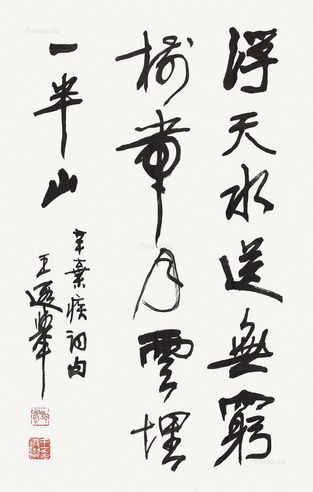 浮天水送無窮
樹帶雨雲埋
一半山
辛棄疾詞句
王遐舉